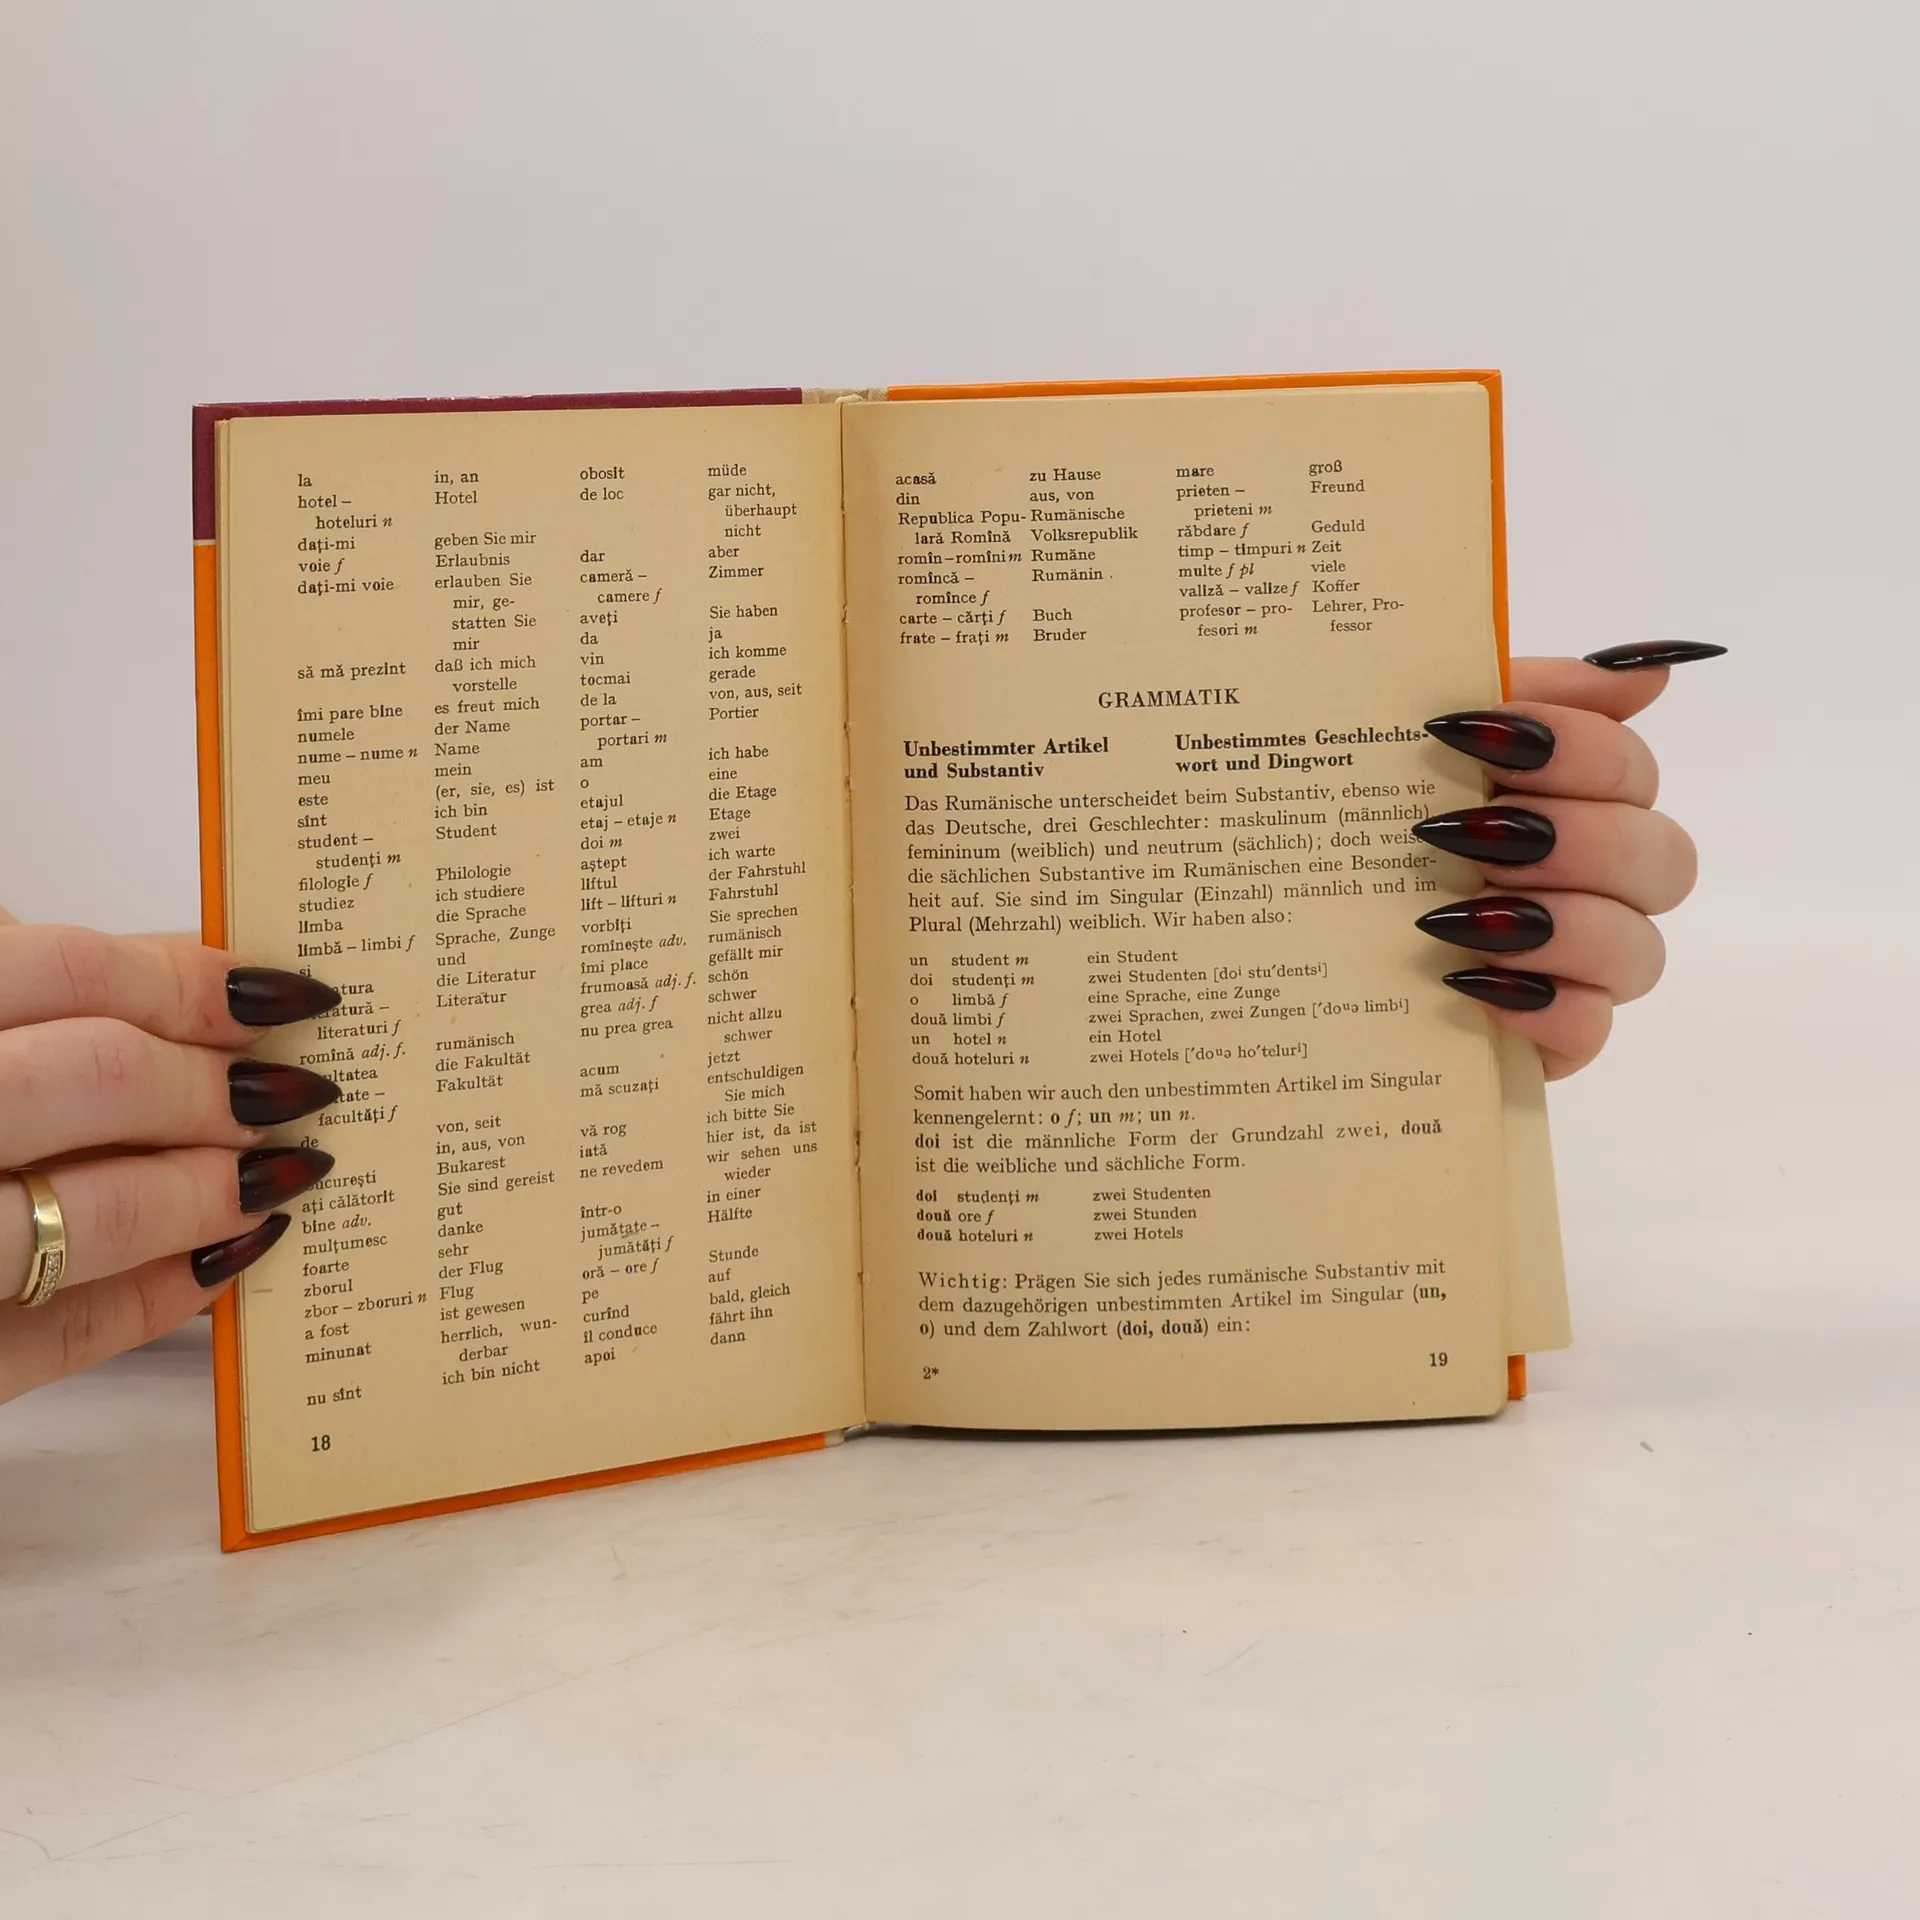 la
hotel –
hoteluri n
dați-mi
voie f
dați-mi voie
să mă prezint
îmi pare bine
numele
nume – nume n
meu
este
sînt
student –
studenți m
filologie f
studiez
limba
limbă – limbi f
literaturi f
romînă adj. f.
facultăți f
de
ați călătorit
bine adv.
mulțumesc
foarte
zborul
zbor – zboruri n
a fost
minunat
nu sînt
in, an
Hotel
geben Sie mir
Erlaubnis
erlauben Sie
mir, ge-
statten Sie
mir
daß ich mich
vorstelle
es freut mich
der Name
Name
mein
(er, sie, es) ist
ich bin
Student
Philologie
ich studiere
die Sprache
Sprache, Zunge
und
die Literatur
Literatur
rumänisch
die Fakultät
Fakultät
von, seit
in, aus, von
Bukarest
Sie sind gereist
gut
danke
sehr
der Flug
Flug
ist gewesen
herrlich, wun-
derbar
ich bin nicht
obosit
de loc
dar
cameră –
camere f
aveți
da
vin
tocmai
de la
portar –
portari m
am
o
etajul
etaj – etaje n
doi m
aștept
liftul
lift – lifturi n
vorbiți
romînește adv.
îmi place
frumoasă adj. f.
grea adj. f
nu prea grea
acum
mă scuzați
vă rog
iată
ne revedem
într-o
jumătate –
jumătăți f
oră – ore f
pe
curînd
îl conduce
apoi
müde
gar nicht,
überhaupt
nicht
aber
Zimmer
Sie haben
ja
ich komme
gerade
von, aus, seit
Portier
ich habe
eine
die Etage
Etage
zwei
ich warte
der Fahrstuhl
Fahrstuhl
Sie sprechen
rumänisch
gefällt mir
schön
schwer
nicht allzu
schwer
jetzt
entschuldigen
Sie mich
ich bitte Sie
hier ist, da ist
wir sehen uns
wieder
in einer
Hälfte
Stunde
auf
bald, gleich
fährt ihn
dann
18
acasă
din
Republica Popu-
lară Romînă
romîn–romîni m
romîncă –
romînce f
carte – cărți f
frate – frați m
zu Hause
aus, von
Rumänische
Volksrepublik
Rumäne
Rumänin
Buch
Bruder
mare
prieten –
prieteni m
răbdare f
timp – timpuri n
multe f pl
valiză – valize f
profesor – pro-
fesori m
groß
Freund
Geduld
Zeit
viele
Koffer
Lehrer, Pro-
fessor
GRAMMATIK
Unbestimmter Artikel
und Substantiv
Unbestimmtes Geschlechts-
wort und Dingwort
Das Rumänische unterscheidet beim Substantiv, ebenso wie
das Deutsche, drei Geschlechter: maskulinum (männlich),
femininum (weiblich) und neutrum (sächlich); doch
die sächlichen Substantive im Rumänischen eine Besonder-
heit auf. Sie sind im Singular (Einzahl) männlich und im
Plural (Mehrzahl) weiblich. Wir haben also:
un student m ein Student
doi studenți m zwei Studenten [doⁱ stu′dentsⁱ]
o limbă f eine Sprache, eine Zunge
două limbi f zwei Sprachen, zwei Zungen [′doᵘə limbⁱ]
un hotel n ein Hotel
două hoteluri n zwei Hotels [′doᵘə ho′telurⁱ]
Somit haben wir auch den unbestimmten Artikel im Singular
kennengelernt: o f; un m; un n.
doi ist die männliche Form der Grundzahl zwei, două
ist die weibliche und sächliche Form.
doi studenți m zwei Studenten
două ore f zwei Stunden
două hoteluri n zwei Hotels
Wichtig: Prägen Sie sich jedes rumänische Substantiv mit
dem dazugehörigen unbestimmten Artikel im Singular (un,
o) und dem Zahlwort (doi, două) ein:
2*
19